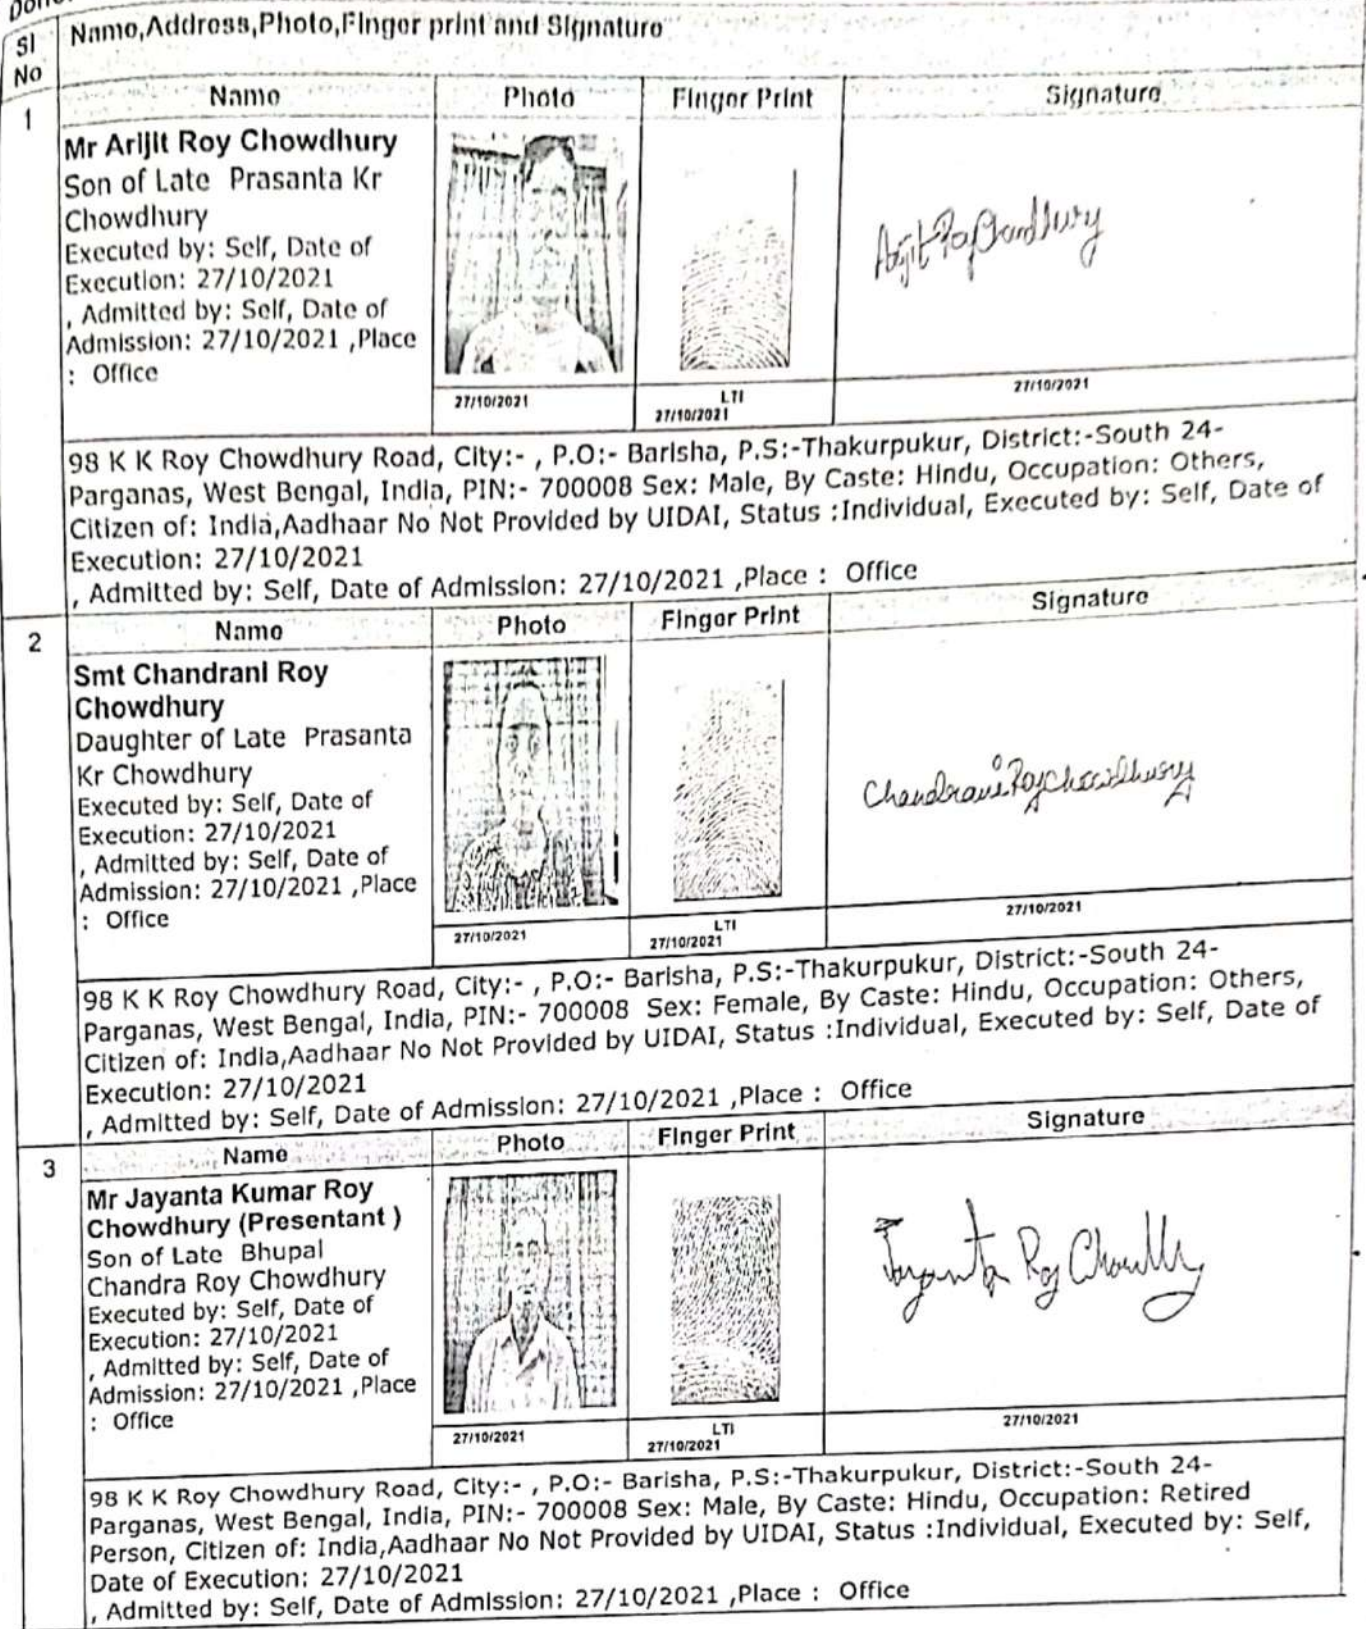 Sl
No
Name,Address,Photo,Finger print and Signature
1
Name
Photo
Finger Print
Signature
Mr Arijit Roy Chowdhury
Son of Late Prasanta Kr
Chowdhury
Executed by: Self, Date of
Execution: 27/10/2021
, Admitted by: Self, Date of
Admission: 27/10/2021 ,Place
: Office
Arijit Roy Chowdhury
27/10/2021
LTI
27/10/2021
27/10/2021
98 K K Roy Chowdhury Road, City:- , P.O:- Barisha, P.S:-Thakurpukur, District:-South 24-
Parganas, West Bengal, India, PIN:- 700008 Sex: Male, By Caste: Hindu, Occupation: Others,
Citizen of: India,Aadhaar No Not Provided by UIDAI, Status :Individual, Executed by: Self, Date of
Execution: 27/10/2021
, Admitted by: Self, Date of Admission: 27/10/2021 ,Place : Office
2
Name
Photo
Finger Print
Signature
Smt Chandrani Roy
Chowdhury
Daughter of Late Prasanta
Kr Chowdhury
Executed by: Self, Date of
Execution: 27/10/2021
, Admitted by: Self, Date of
Admission: 27/10/2021 ,Place
: Office
Chandrani Roy Chowdhury
27/10/2021
LTI
27/10/2021
27/10/2021
98 K K Roy Chowdhury Road, City:- , P.O:- Barisha, P.S:-Thakurpukur, District:-South 24-
Parganas, West Bengal, India, PIN:- 700008 Sex: Female, By Caste: Hindu, Occupation: Others,
Citizen of: India,Aadhaar No Not Provided by UIDAI, Status :Individual, Executed by: Self, Date of
Execution: 27/10/2021
, Admitted by: Self, Date of Admission: 27/10/2021 ,Place : Office
3
Name
Photo
Finger Print
Signature
Mr Jayanta Kumar Roy
Chowdhury (Presentant )
Son of Late Bhupal
Chandra Roy Chowdhury
Executed by: Self, Date of
Execution: 27/10/2021
, Admitted by: Self, Date of
Admission: 27/10/2021 ,Place
: Office
Jayanta Roy Chowdhury
27/10/2021
LTI
27/10/2021
27/10/2021
98 K K Roy Chowdhury Road, City:- , P.O:- Barisha, P.S:-Thakurpukur, District:-South 24-
Parganas, West Bengal, India, PIN:- 700008 Sex: Male, By Caste: Hindu, Occupation: Retired
Person, Citizen of: India,Aadhaar No Not Provided by UIDAI, Status :Individual, Executed by: Self,
Date of Execution: 27/10/2021
, Admitted by: Self, Date of Admission: 27/10/2021 ,Place : Office